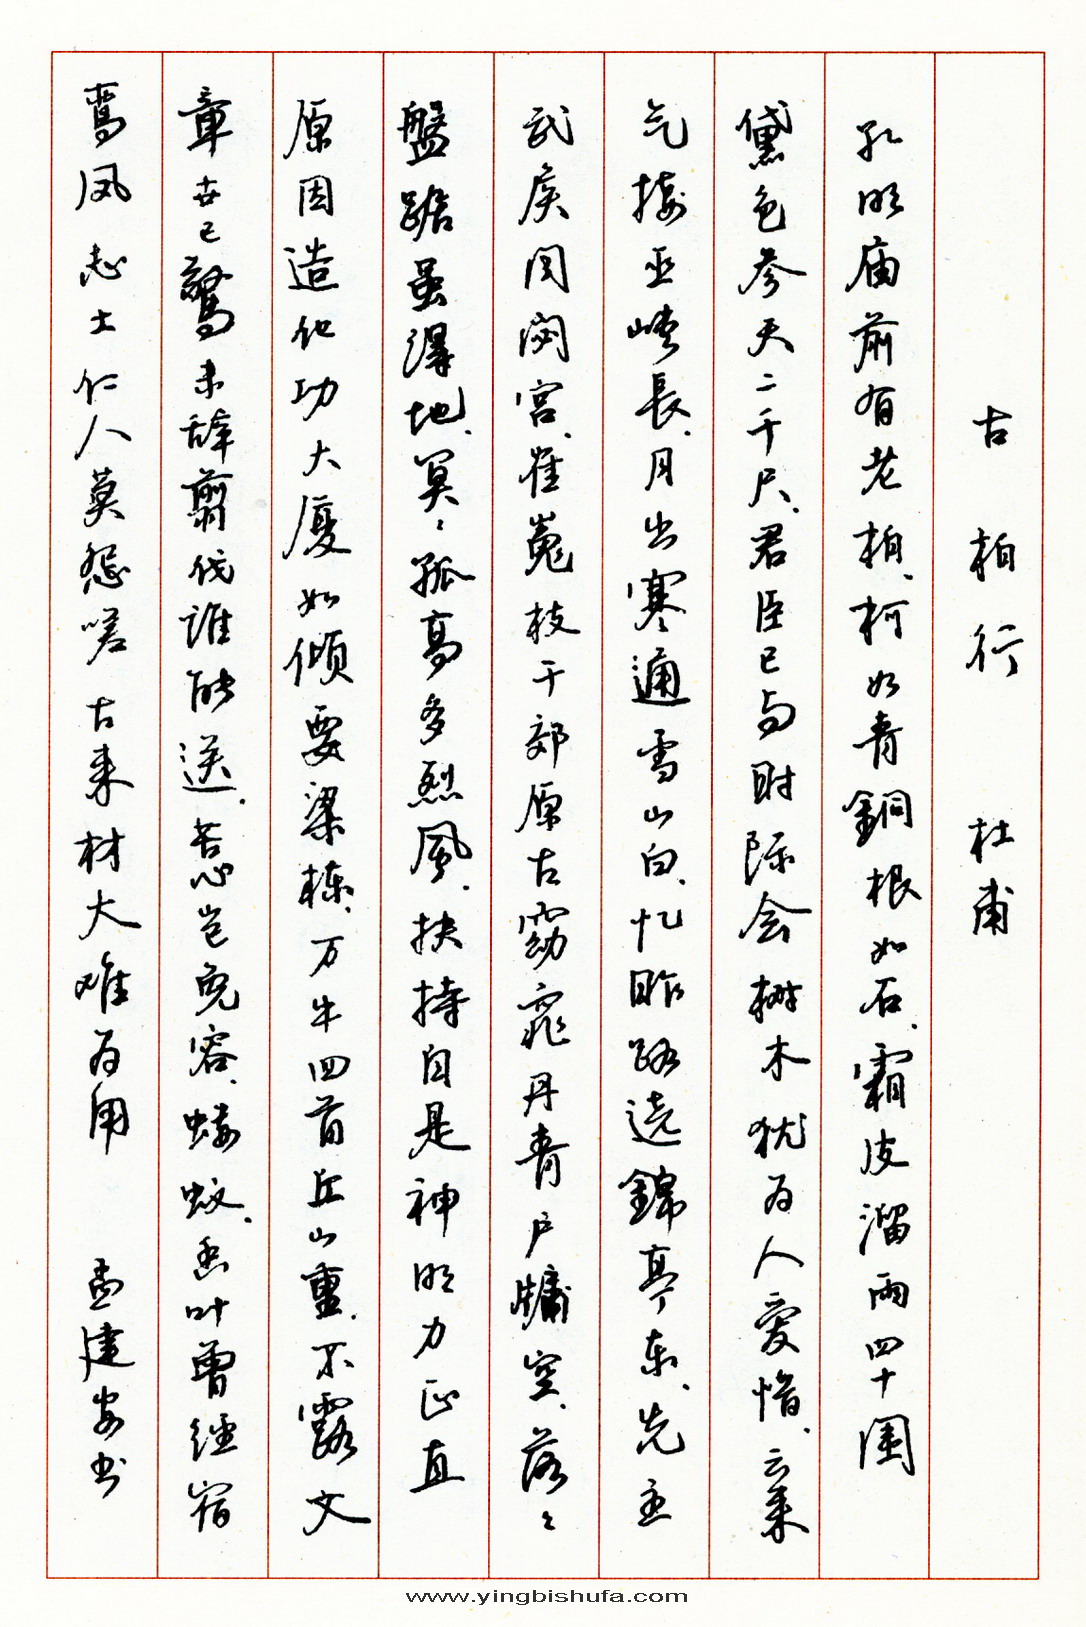 古柏行 杜甫
孔明庙前有老柏、柯如青銅根如石、霜皮溜雨四十围
黛色参天二千尺、君臣已与时际会树木犹为人爱惜、云来
气接巫峡長、月出寒通雪山白、忆昨路遶錦亭东、先主
武侯同閟宫、崔嵬枝干郊原古窈窕丹青户牖空、落々
盤踞虽得地、冥々孤高多烈風、扶持自是神明力正直
原因造化功大厦如倾要梁栋、万牛回首丘山重、不露文
章世已驚未辞翦伐谁能送、苦心岂免容蝼蚁、香叶曾经宿
鸾凤志士仁人莫怨嗟古来材大难为用 孟建安书
www.yingbishufa.com